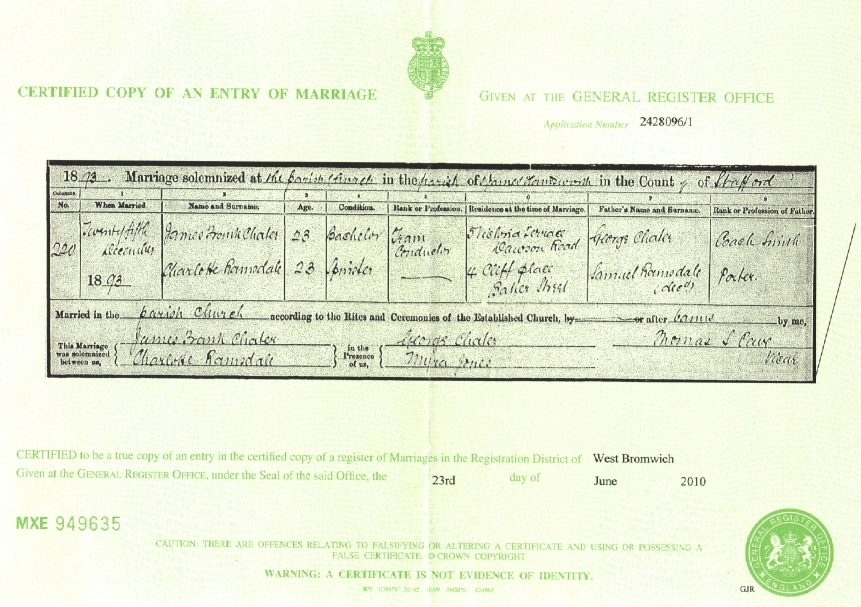 CERTIFIED COPY OF AN ENTRY OF MARRIAGE
GIVEN AT THE GENERAL REGISTER OFFICE
Application Number 2428096/1
1893. Marriage solemnized at the Parish Church in the parish of St James Handsworth in the County of Stafford
Columns 1 2 3 4 5 6 7 8
No. When Married. Name and Surname. Age. Condition. Rank or Profession. Residence at the time of Marriage. Father's Name and Surname. Rank or Profession of Father.
220 Twenty fifth December 1893
James Frank Chater 23 Bachelor Tram Conductor 5 Victoria Terrace Dawson Road George Chater Smith
Charlotte Ramsdale 23 Spinster 4 Cliff place Baker Street Samuel Ramsdale (decd) Porter.
Married in the parish Church according to the Rites and Ceremonies of the Established Church, by or after banns by me,
This Marriage was solemnized between us, James Frank Chater Charlotte Ramsdale in the Presence of us, George Chater Myra Jones Thomas S Cave Vicar
CERTIFIED to be a true copy of an entry in the certified copy of a register of Marriages in the Registration District of West Bromwich
Given at the GENERAL REGISTER OFFICE, under the Seal of the said Office, the 23rd day of June 2010
MXE 949635
CAUTION: THERE ARE OFFENCES RELATING TO FALSIFYING OR ALTERING A CERTIFICATE AND USING OR POSSESSING A
FALSE CERTIFICATE. © CROWN COPYRIGHT
WARNING: A CERTIFICATE IS NOT EVIDENCE OF IDENTITY.
GJR
GENERAL REGISTER OFFICE ENGLAND